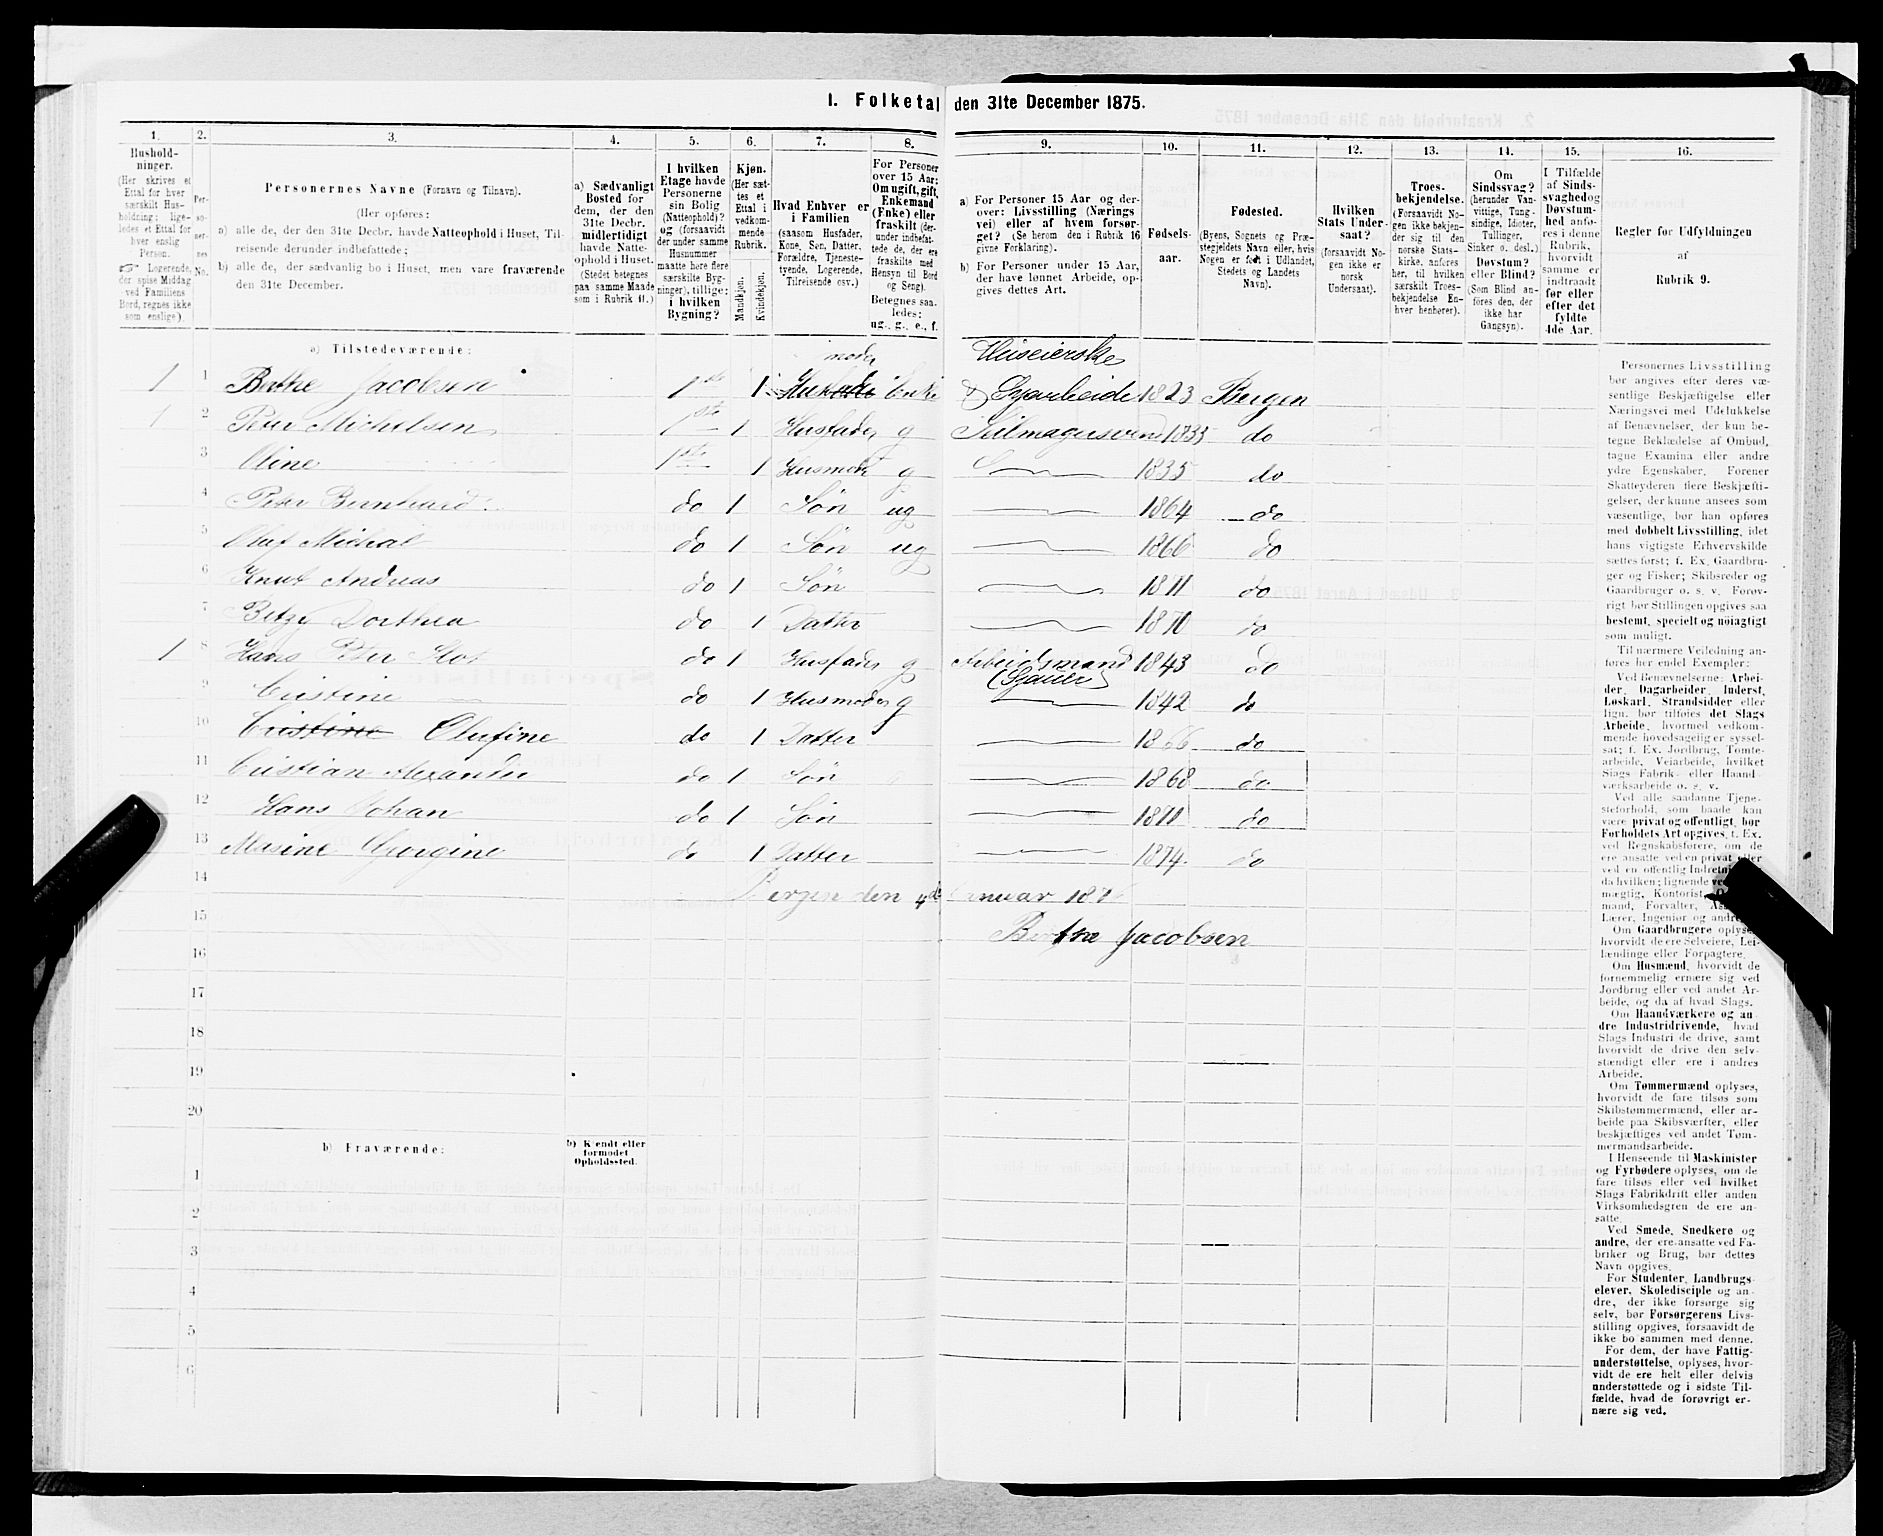 I. Folketal den 31te December 1875.
1. 2. 3. 4. 5. 6. 7. 8. 9. 10. 11. 12. 13. 14. 15. 16.
Husholdninger.
(Her skrives et
Ettal for hver
særskilt Hus-
holdning; lige-
ledes et Ettal for
hver enslig
Person.
☞ Logerende,
der spise Middag
ved Familiens
Bord, regnes ikke
som enslige).
Per-
so-
ner-
nes
No.
Personernes Navne (Fornavn og Tilnavn).
(Her opføres:
a) alle de, der den 31te Decbr. havde Natteophold i Huset, Til-
reisende derunder indbefattede;
b) alle de, der sædvanlig bo i Huset, men vare fraværende
den 31te December.
a) Sædvanligt
Bosted for
dem, der den
31te Decbr.
midlertidigt
havde Natte-
ophold i Huset.
(Stedet betegnes
paa samme Maade
som i Rubrik 11.)
I hvilken
Etage havde
Personerne
sin Bolig
(Natteophold)?
og (forsaavidt
der under samme
Husnummer
maatte høre flere
særskilte Byg-
ninger), tillige:
i hvilken
Bygning?
Kjøn.
(Her sæt-
tes et
Ettal i
vedkom-
mende
Rubrik.
Mandkjøn.
Kvindekjøn.
Hvad Enhver er
i Familien
(saasom Husfader,
Kone, Søn, Datter,
Forældre, Tjeneste-
tyende, Logerende,
Tilreisende osv.)
For Personer
over 15 Aar:
Om ugift, gift,
Enkemand
(Enke) eller
fraskilt (der-
under indbefat-
tede de, der ere
fraskilte med
Hensyn til Bord
og Seng).
Betegnes saa-
ledes:
ug., g., e., f.
a) For Personer 15 Aar og der-
over: Livsstilling (Nærings-
vei) eller af hvem forsør-
get? (Se herom den i Rubrik 16
givne Forklaring).
b) For Personer under 15 Aar,
der have lønnet Arbeide, op-
gives dettes Art.
Fødsels-
aar.
Fødested.
(Byens, Sognets og Præ-
stegjeldets Navn eller, hvis
Nogen er født i Udlandet,
Stedets og Landets
Navn).
Hvilken
Stats Under-
saat?
(forsaavidt No-
gen ikke er
norsk
Undersaat).
Troes-
bekjendelse.
(Forsaavidt No-
gen ikke bekjen-
der sig til den
norske Stats-
kirke, anføres
her, til hvilken
særskilt Troes-
bekjendelse En-
hver henhører).
Om
Sindssvag?
(herunder Van-
vittige, Tung-
sindige, Idioter,
Tullinger,
Sinker o. desl.)
Døvstum?
eller Blind?
(Som Blind an-
føres den, der
ikke har
Gangsyn).
I Tilfælde
af Sinds-
svaghed og
Døvstum-
hed anfø-
res i denne
Rubrik,
hvorvidt
samme er
indtraadt
før eller
efter det
fyldte
4de Aar.
Regler for Udfyldningen
af
Rubrik 9.
a) Tilstedeværende:
moder Huseierske
1 1 Berthe Jacobsen 1ste 1 Husfader Enke & Syarbeide 1823 Bergen
1 2 Peter Michelsen 1ste 1 Husfader g Seilmagersvend 1835 do
3 Oline 1ste 1 Husmor g 1835 do
4 Peter Bernhard do 1 Søn ug 1864 do
5 Oluf Michal do 1 Søn ug 1866 do
6 Knut Andreas do 1 Søn do
7 Betzy Dorthea do 1 Datter 1870 do
1 8 Hans Peter do 1 Husfader g Arbeidsmand 1843 do
9 Cristine do 1 Husmoder g 1842 do
10 Cristine Olufine do 1 Datter 1866 do
11 Cristian Alexander do 1 Søn 1868 do
12 Hans Johan do 1 Søn do
13 Masine Gjorgine do 1 Datter 1874 do
14 Bergen den 4de Januar 1876
15 Berthe Jacobsen
16
17
18
19
20
b) Fraværende:
b) Kjendt eller
formodet
Opholdssted.
1
2
3
4
5
6
Personernes Livsstilling
bør angives efter deres væ-
sentlige Beskjæftigelse eller
Næringsvei med Udelukkelse
af Benævnelser, der kun be-
tegne Beklædelse af Ombud,
tagne Examina eller andre
ydre Egenskaber. Forener
Skatteyderen flere Beskjæfti-
gelser, der kunne ansees som
væsentlige, bør han opføres
med dobbelt Livsstilling, idet
hans vigtigste Erhvervskilde
sættes først; f. Ex. Gaardbru-
ger og Fisker; Skibsreder og
Gaardbruger o. s. v. Forøv-
rigt bør Stillingen opgives saa
bestemt, specielt og nøiagtigt
som muligt.
Til nærmere Veiledning an-
føres her endel Exempler:
Ved Benævnelserne: Arbei-
der, Dagarbeider, Inderst,
Løskarl, Strandsidder eller
lign. bør tilføies det Slags
Arbeide, hvormed vedkom-
mende hovedsagelig er syssel-
sat; f. Ex. Jordbrug, Tomte-
arbeide, Veiarbeide, hvilket
Slags Fabrik- eller Haand-
værksarbeide o. s. v.
Ved alle saadanne Tjene-
steforhold, som baade kan
være privat og offentligt, bør
Forholdets Art opgives, t. Ex.
ved Regnskabsførere, om de
ere ansatte ved en privat eller
ved en offentlig Indretning
da hvilken; lignende ved
mægtig, Kontorist,
mand, Forvalter,
Lærer, Ingeniør og andre
Om Gaardbrugere oplyses,
hvorvidt de ere Selveiere, Lei-
lændinge eller Forpagtere.
Om Husmænd, hvorvidt de
fornemmelig ernære sig ved
Jordbrug eller ved andet Ar-
beide, og da af hvad Slags.
Om Haandværkere og an-
dre Industridrivende, hvad
Slags Industri de drive, samt
hvorvidt de drive den selv-
stændigt eller ere i andres
Arbeide.
Om Tømmermænd oplyses,
hvorvidt de fare tilsøs som
Skibstømmermænd, eller ar-
beide paa Skibsværfter, eller
beskjæftiges ved andet Tøm-
mermandsarbeide.
I Henseende til Maskinister
og Fyrbødere oplyses, om de
fare tilsøs eller ved hvilket
Slags Fabrikdrift eller anden
Virksomhedsgren de ere an-
satte.
Ved Smede, Snedkere og
andre, der ere ansatte ved Fa-
briker og Brug, bør dettes
Navn opgives.
For Studenter, Landbrugs-
elever, Skoledisciple og an-
dre, der ikke forsørge sig
selv, bør Forsørgerens Livs-
stilling opgives, forsaavidt de
ikke bo sammen med denne.
For dem, der have Fattig-
understøttelse, oplyses, hvor-
vidt de ere helt eller delvis
understøttede og i sidste Til-
fælde, hvad de forøvrigt er-
nære sig ved.